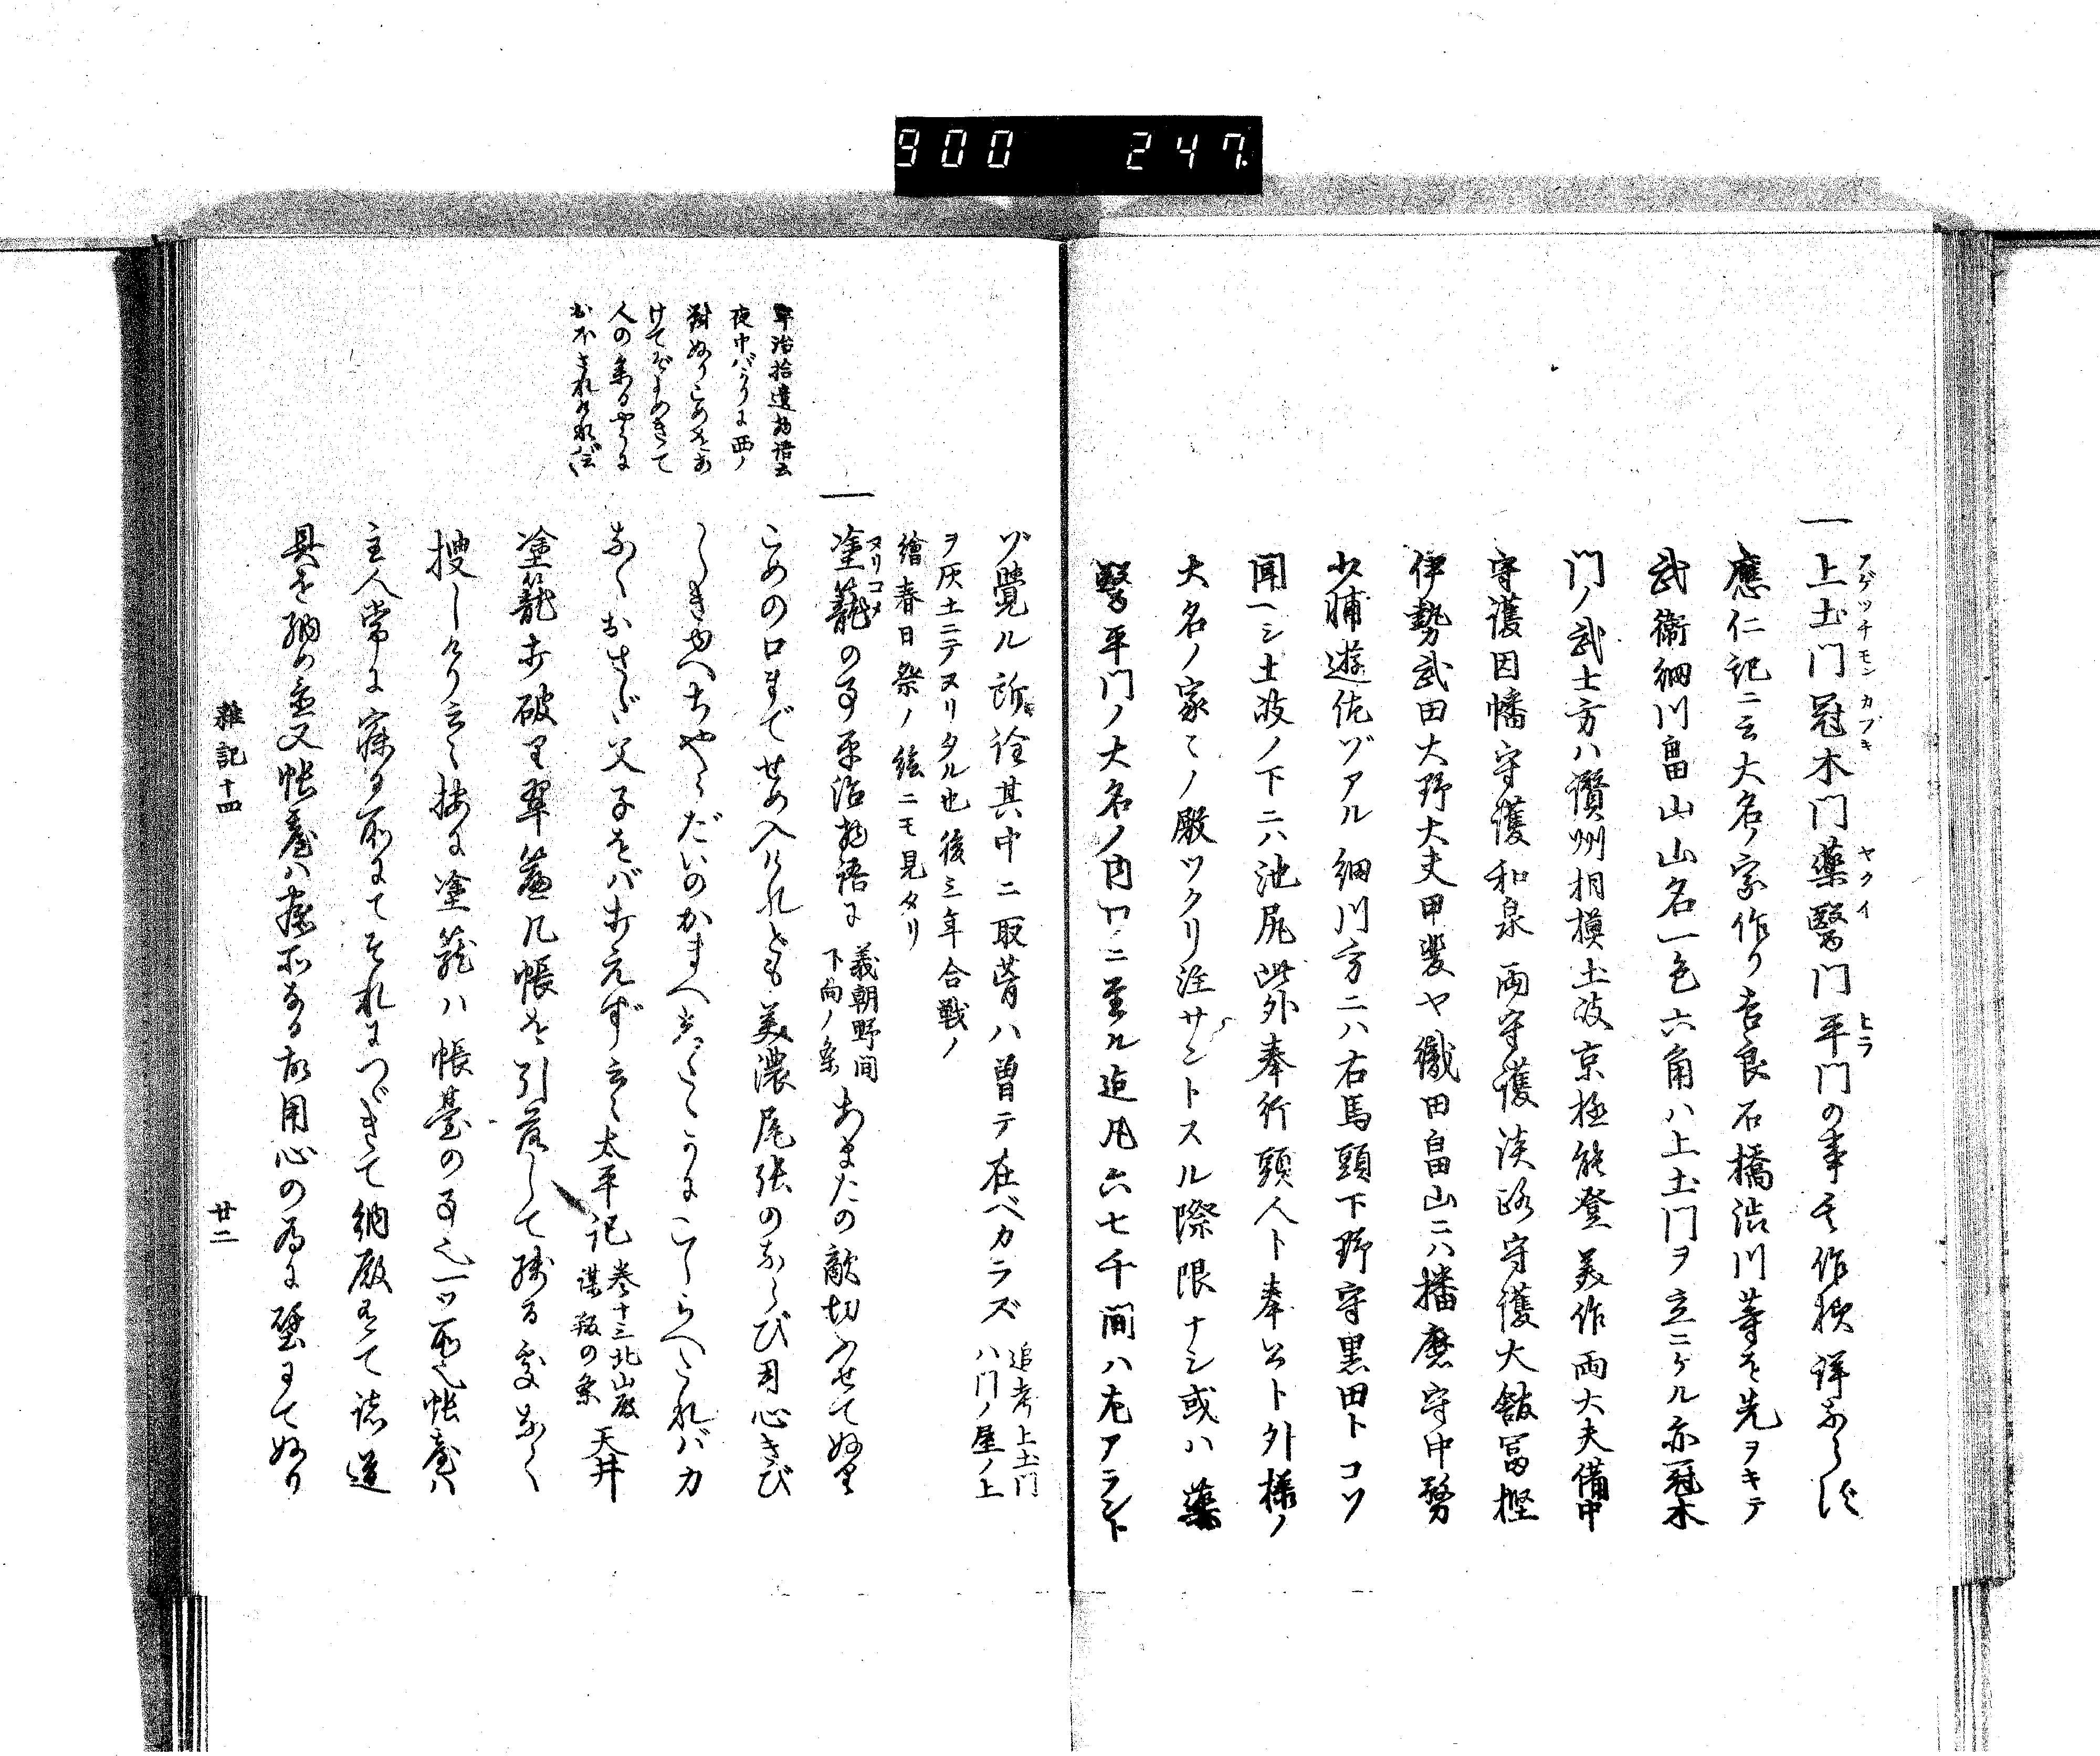 900 247
一上土門冠木門藥醫門平門の事其作樣詳ならず
アゲツチモン カブキ ヤクイ ヒラ
應仁記ニ云大名ノ家作リ吉良石橋渋川等を先ヲキテ
武衛細川畠山山名一色六角ハ上土門ヲ立ニケル亦冠木
門ノ武士方ハ讃州相模土岐京極能登美作両大夫備中
守護因幡守護和泉両守護淡路守護大舘冨樫
伊勢武田大野大夫甲斐ヤ織田畠山ニハ播磨守中務
少輔遊佐ゾアル細川方ニハ右馬頭下野守黒田トコソ
聞ヘシ土岐ノ下ニハ池尻此外奉行頭人ト奉公ト外様ノ
大名ノ家々ノ殿ツクリ注サントスル際限ナシ或ハ藥
醫平門ノ大名ノ内ニ至ル迠凡六七千間ハ尢アラント
ゾ覺ル所詮其中ニ取葺ハ曽テ在ベカラズ
追考上土門
ハ門ノ屋ノ上
ヲ灰土ニテヌリタル也後三年合戦ノ
繪春日祭ノ絵ニモ見タリ
一塗籠の事平治物語に
ヌリコメ
義朝野間
下向ノ条
あまたの敵切ふせてぬり
こめの口までせめ入けれども美濃尾張のならび用心きび
しきゆへちやうだいのかまへしたゝかにこしらへたれバ力
なくおさだ父子をバ打えず云々太平記
巻十三北山殿
謀叛の条
天井
塗籠打破り翠簾几帳を引落して残る處なく
捜しけり云々按に塗籠ハ帳臺の事也一ツ所也帳臺ハ
主人常に寐る所にてそれにつゞきて納殿有て諸道
具を納め置又帳臺ハ寐所なる故用心の為に壁にてぬり
宇治拾遺物語云
夜中バかりに西ノ
對ぬりこめをあ
けてそよめきて
人の参るやうに
おぼされければ云々
雜記十四
廿二